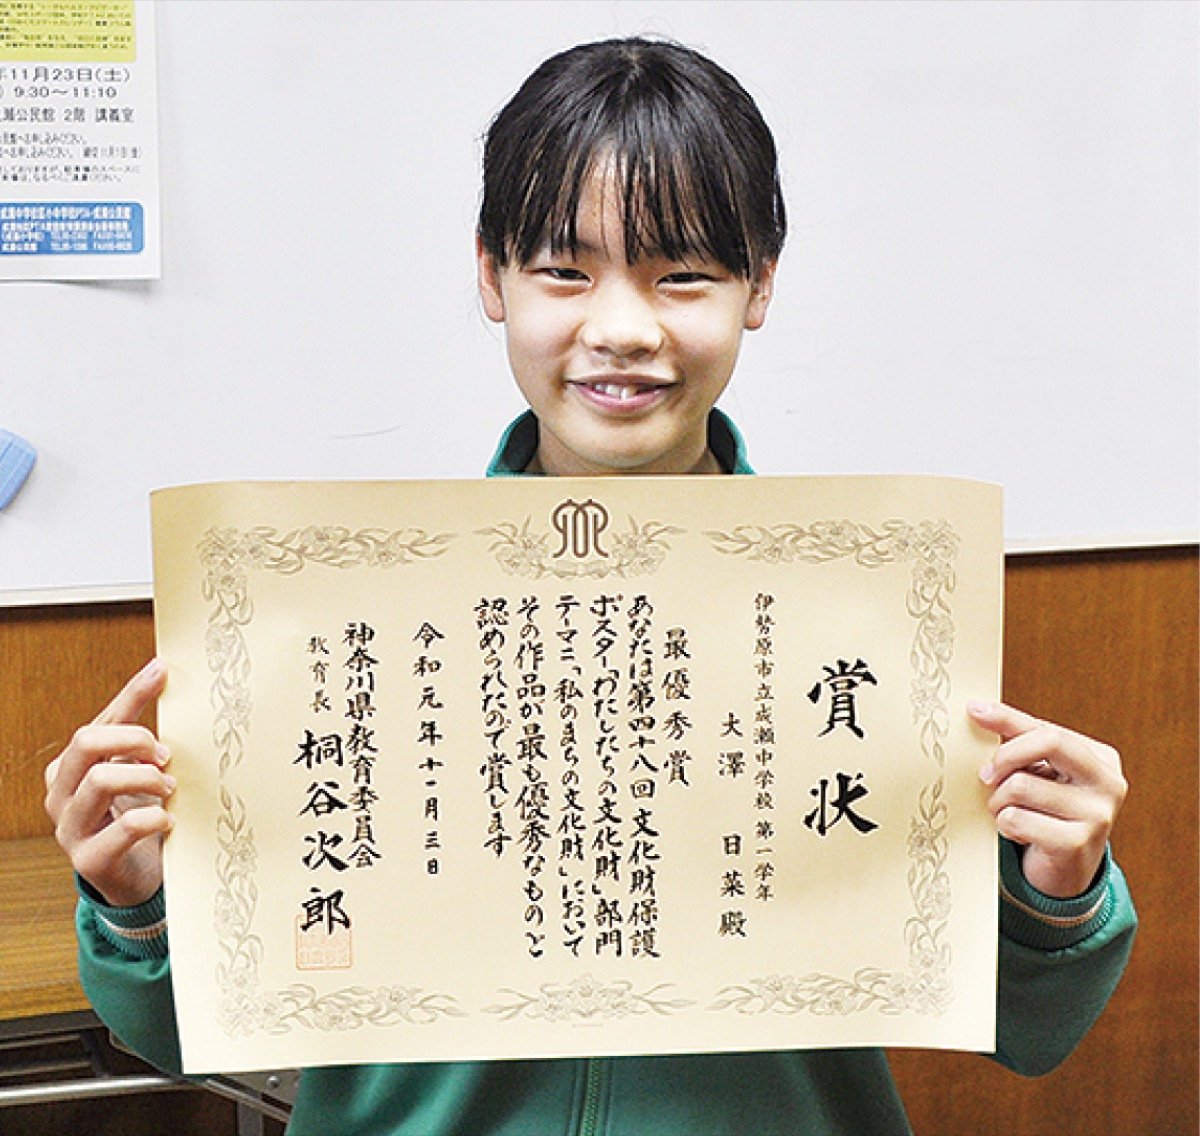 年11月23日(土)
9:30～11:10
瀬公民館 2階 講義室
賞状
伊勢原市立成瀬中学校 第一学年
大澤 日菜 殿
最優秀賞
あなたは第四十八回文化財保護
ポスター「わたしたちの文化財」部門
テーマ二「私のまちの文化財」において
その作品が最も優秀なものと
認められたので賞します
令和元年十一月三日
神奈川県教育委員会
教育長 桐谷次郎